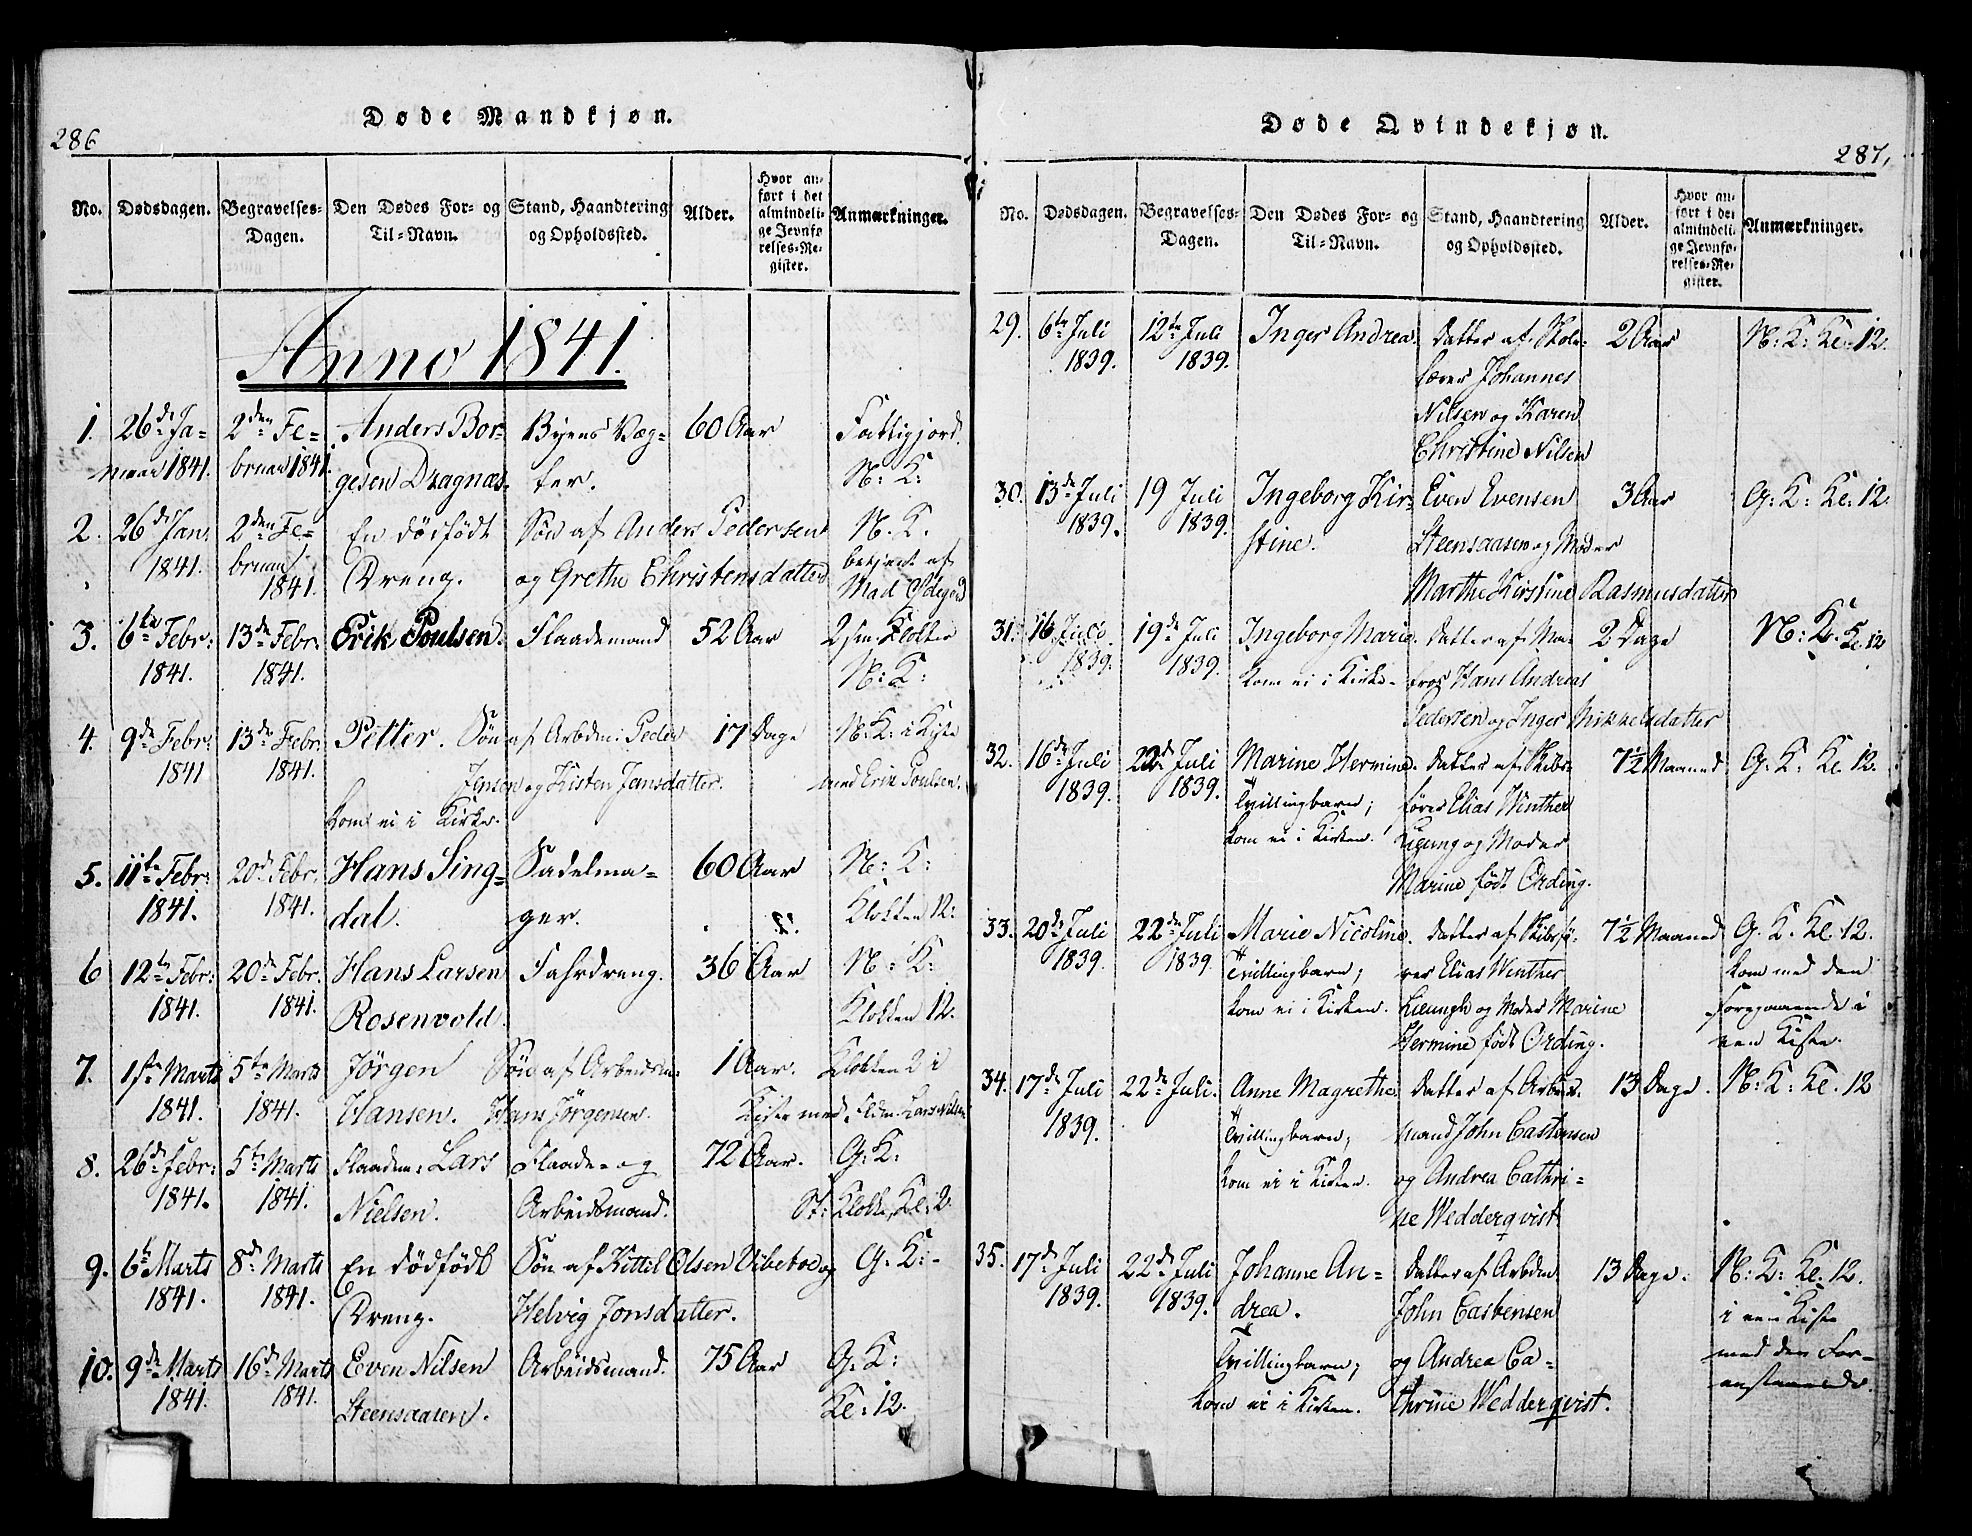 286
Døde Mandkjøn.
No. Dødsdagen. Begravelses-Dagen. Den Dødes For- og Til-Navn. Stand, Haandtering og Opholdssted. Alder. Hvor anført i det almindelige Jevnførelses-Register. Anmærkninger.
Anno 1841.
1. 26de Ja- 2den Fe- Anders Bor- Byens Væg- 60 Aar Fattigjord.
nuar 1841. bruar 1841. gesen Dragnæs. ter. N: K:
2. 26de Jan. 2den Fe- En dödfödt Sön af Anders Pedersen N. K.
1841. bruar 1841. Dreng. og Grethe Christensdatter besörget af
Mad Ödegrd
3. 6te Febr: 13de Febr. Erik Poulsen. Flaademand 52 Aar 2 sm: Klokker
1841. 1841. N: K:
4. 9de Febr: 13de Febr. Petter. Sön af Arbdm: Peder 17 Dage N: K: i Kiste
1841 1841. Jensen og Kisten Jansdatter. med Erik Poulsen.
kom ei i Kirke.
5. 11te Febr: 20de Febr: Hans Sing- Sadelma- 60 Aar N: K:
1841. 1841. dal. ger. Klokken 12.
6 12te Febr: 20de Febr. Hans Larsen Fahrdreng. 36 Aar N: K:
1841. 1841. Rosenvold. Klokken 12.
7. 1ste Marts 5te Marts Jörgen Sön af Arbeidsm: 1 Aar. Klokken 2 i
1841. 1841. Hansen. Hans Jörgensen. Kiste med Fldm. Lars Nilsen
8. 26de Febr: 5te Marts Flaadem: Lars Flaade- og 72 Aar. G: K:
1841. 1841. Nielsen. Arbeidsmand. St: Klokke, Kl: 2.
9. 6te Marts 8de Marts En dödfödt Sön af Kittil Olsen Vibetoe og G: K:
1841. 1841. Dreng. Helvig Jonsdatter.
10. 9de Marts 16de Marts Even Nilsen Arbeidsmand. 75 Aar G: K:
1841. 1841. Steensaasen. Kl: 12.
287,
Døde Qvindekjøn.
No. Dødsdagen. Begravelses-Dagen. Den Dødes For- og Til-Navn. Stand, Haandtering og Opholdssted. Alder. Hvor anført i det almindelige Jevnførelses-Register. Anmærkninger.
29. 6te Juli 12te Juli Inger Andrea. Datter af Skole- 2 Aar N: K: Kl. 12.
1839. 1839. lærer Johannes
Nilsen og Karen
Christine Nilsen
30. 13de Juli 19 Juli Ingeborg Kir- Even Evensen 3 Aar G: K: Kl: 12.
1839. 1839. stine. Steensaasen og Moder
Marthe Kirstine Rasmusdatter
31. 16 Juli 19de Juli Ingeborg Marie. Datter af Ma- 2 Dage N: K: Kl. 12
1839. 1839. kom ei i Kirke- tros Hans Andreas
Pedersen og Inger Mikkelsdatter
32. 16de Juli 22de Juli Marine Hermine. Datter af Skibs- 7½ Maaned G: K: Kl. 12.
1839. 1839. Tvillingbarn; fører Elias Winther
kom ei i Kirken. Lieung og Moder
Marine født Ording.
33. 20de Juli 22de Juli Marie Nicoline. Datter af Skibsfø- 7½ Maaned G. K. Kl. 12.
1839. 1839. Tvillingbarn; rer Elias Winther kom med den
kom ei i Kirken. Lieungh og Moder Marine foregaaende i
Hermine født Ording. een Kiste.
34. 17de Juli 22de Juli. Anne Magrethe. Datter af Arbeids- 13 Dage. N: K: Kl. 12
1839. Tvillingbarn; mand John Castensen
kom ei i Kirken. og Andrea Cathri-
ne Wedderqvist
35. 17de Juli 22de Juli Johanne An- Datter af Arbdm. 13 Dage. N: K: Kl. 12.
1839. 1839. drea. John Castensen i een Kiste
Tvillingbarn; og Andrea Ca- med den For-
kom ei i Kirken. thrine Wedderqvist. anstaaende.